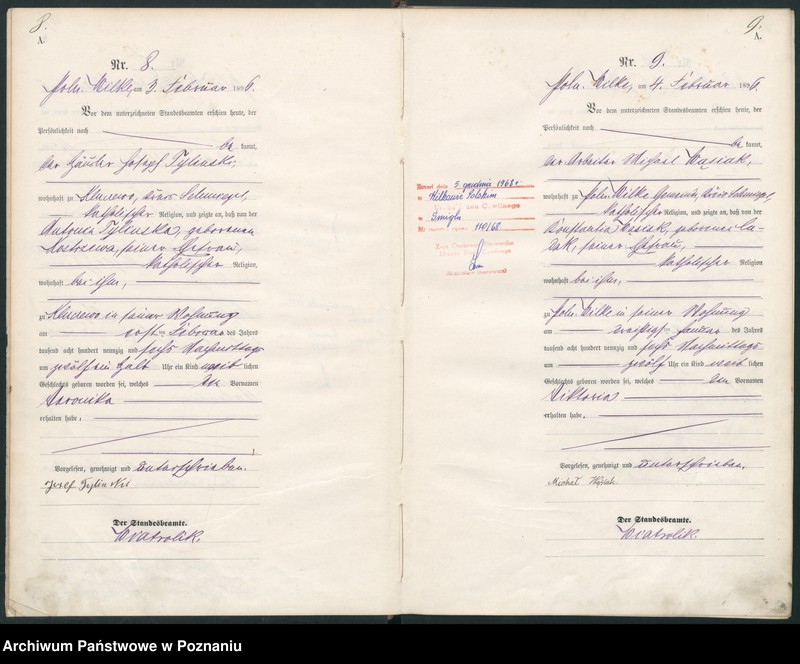 8.
A.
Nr. 8.
Poln. Wilke, am 3. Februar 1896.
Vor dem unterzeichneten Standesbeamten erschien heute, der
Persönlichkeit nach
be kannt,
der Häusler Joseph Tylinski,
wohnhaft zu
katholischer Religion, und zeigte an, daß von der
Antonia Tylinska, geborenen
Kostrzewa, seiner Ehefrau,
katholischer Religion,
wohnhaft bei ihm,
zu in seiner Wohnung
am Februar des Jahres
tausend acht hundert neunzig und sechs Nachmittags
um zwölf ein halb Uhr ein Kind weib lichen
Geschlechts geboren worden sei, welches den Vornamen
Veronika
erhalten habe.
Vorgelesen, genehmigt und unterschrieben.
Josef
Der Standesbeamte.
Wiatrolik.
9.
A.
Nr. 9.
Poln. Wilke, am 4. Februar 1896.
Vor dem unterzeichneten Standesbeamten erschien heute, der
Persönlichkeit nach
be kannt,
der Arbeiter Michael
wohnhaft zu Poln. Wilke Gemeinde, Kreis Schmiegel,
katholischer Religion, und zeigte an, daß von der
Konstantia geborenen
seiner Ehefrau,
katholischer Religion
wohnhaft bei ihm,
zu Poln. Wilke in seiner Wohnung
am Januar des Jahres
tausend acht hundert neunzig und sechs Nachmittags
um zwölf Uhr ein Kind weib lichen
Geschlechts geboren worden sei, welches den Vornamen
Viktoria
erhalten habe.
Vorgelesen, genehmigt und unterschrieben.
Michał
Der Standesbeamte.
Wiatrolik.
5 grudnia 1968 r
w Wilkowie Polskim
Śmigla
110/68
Archiwum Państwowe w Poznaniu